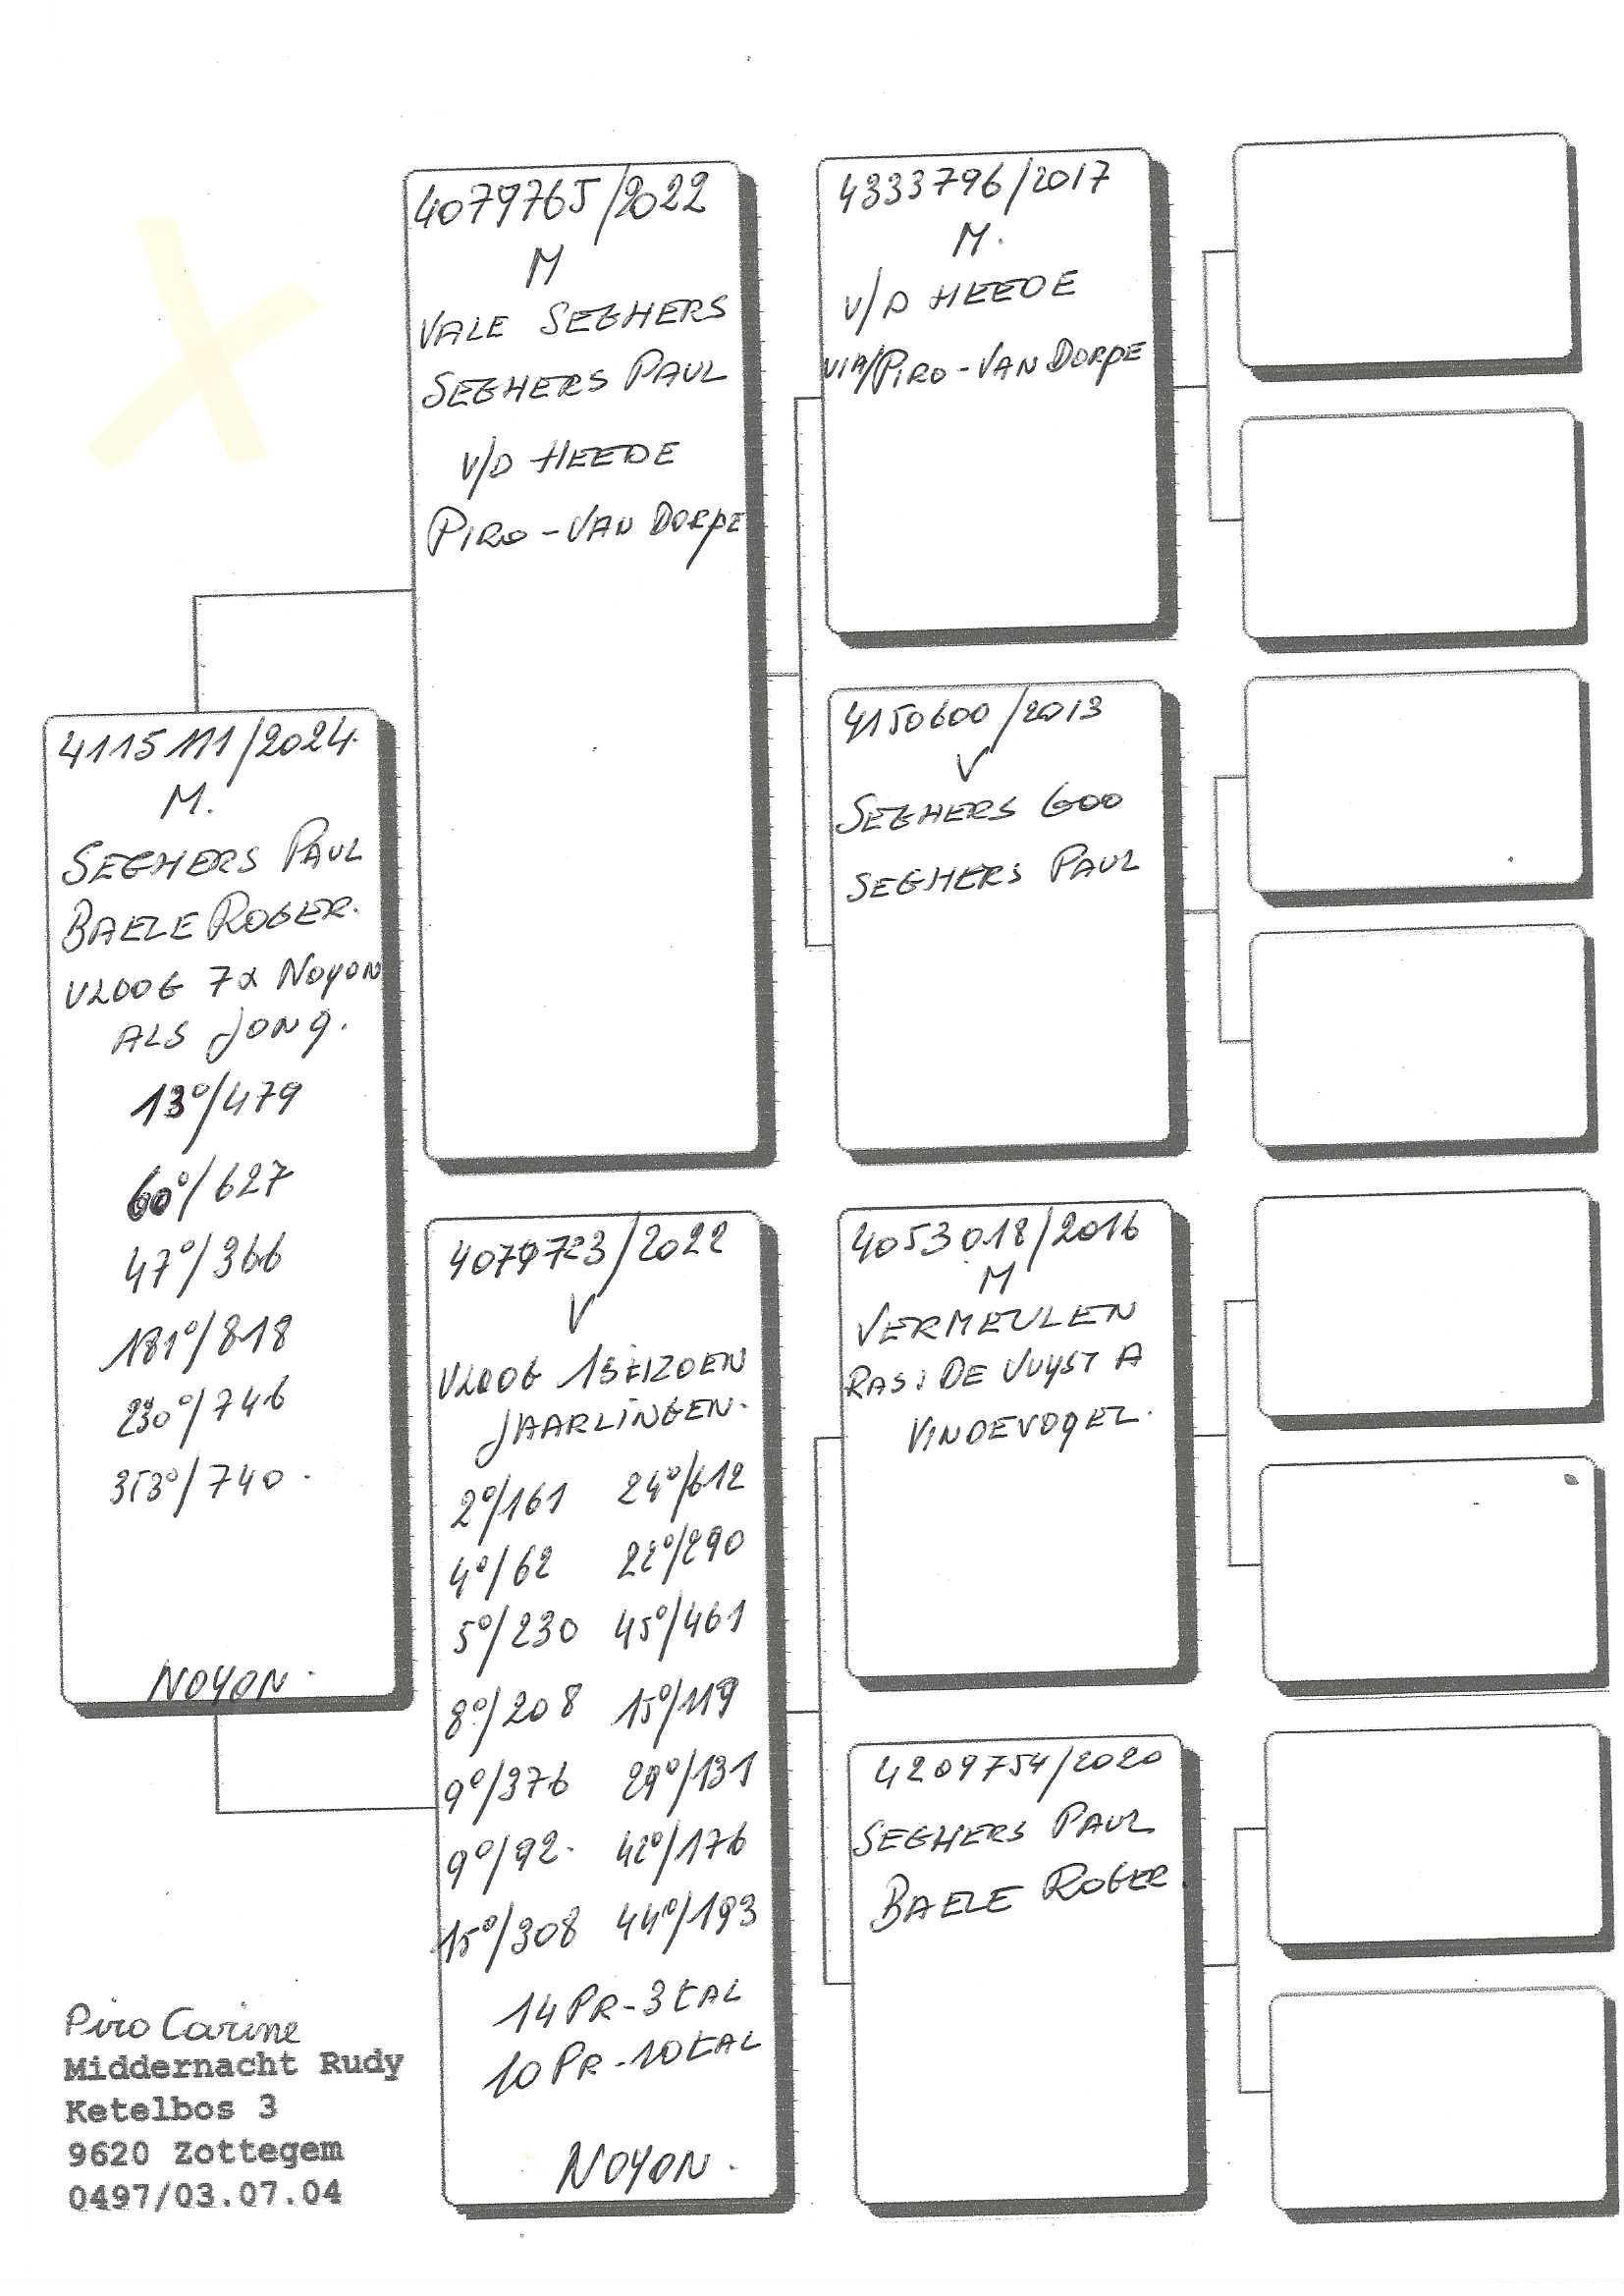 4115111/2024.
M.
SEGHERS PAUL
BAELE ROGER.
VLOOG 7x NOYON
ALS JONG.
13°/479
60°/627
47°/366
181°/818
230°/746
353°/740.
NOYON.
4079765/2022
M
VALE SEGHERS
SEGHERS PAUL
V/D HEEDE
PIRO-VAN DORPE
4079723/2022
V
VLOOG 1 SEIZOEN
JAARLINGEN.
2°/161 24°/612
4°/62 22°/290
5°/230 45°/461
8°/208 15°/119
9°/376 29°/131
9°/92. 42°/176
15°/308 44°/193
14 PR-3TAL
10 PR-10TAL
NOYON.
4333796/2017
M.
V/D HEEDE
VIA/PIRO-VAN DORPE
4150600/2013
V
SEGHERS 600
SEGHERS PAUL
4053018/2016
M
VERMEULEN
RAS: DE VUYST A
VINDEVOGEL.
4209754/2020
SEGHERS PAUL
BAELE ROGER.
Piro Carine
Middernacht Rudy
Ketelbos 3
9620 Zottegem
0497/03.07.04